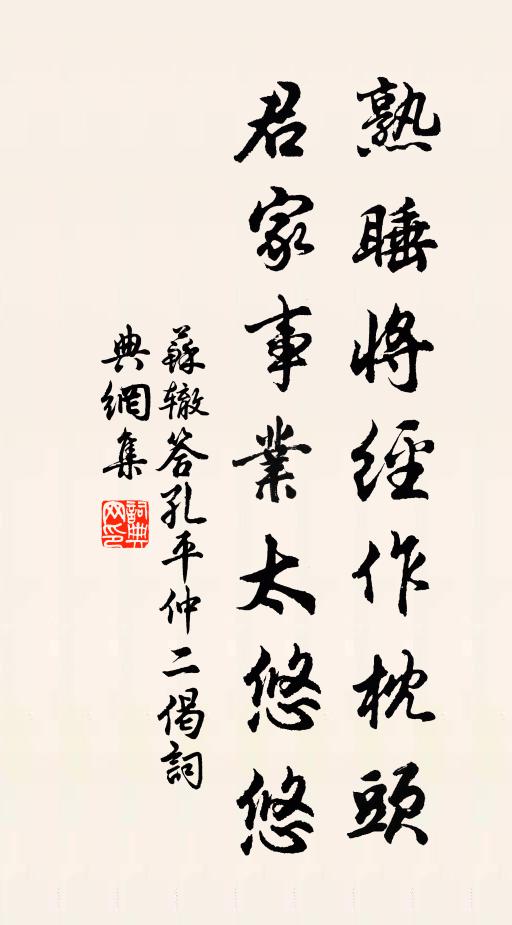 熟睡將經作枕頭
君家事業太悠悠
蘇辙答孔平仲二偈詞
典網集
詞典网印